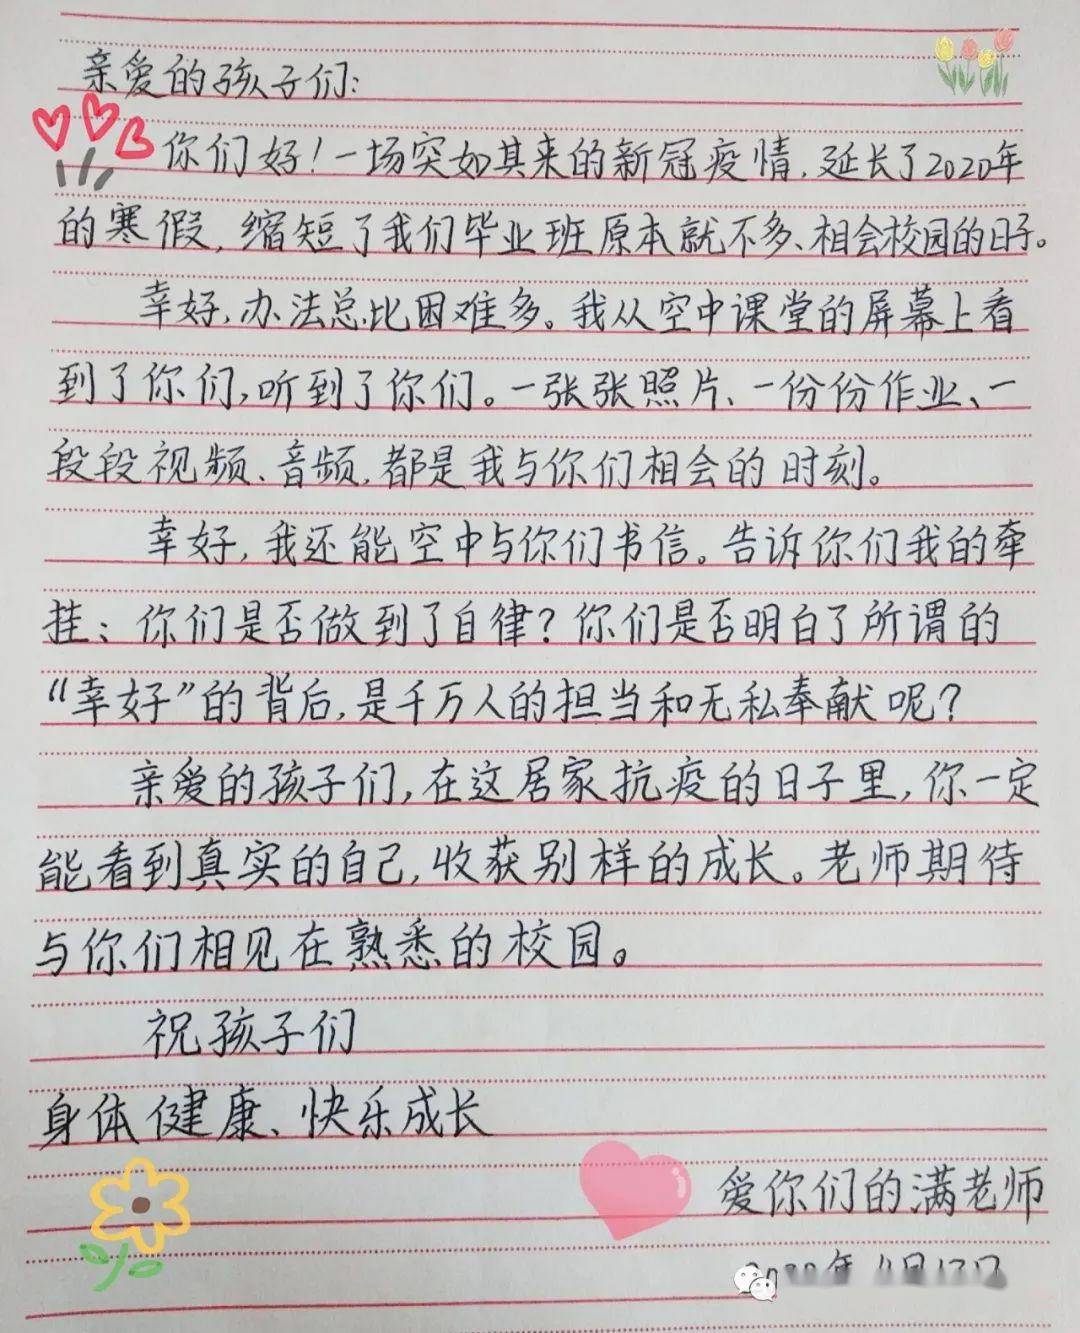 亲爱的孩子们:
你们好!一场突如其来的新冠疫情,延长了2020年
的寒假,缩短了我们毕业班原本就不多、相会校园的日子。
幸好,办法总比困难多。我从空中课堂的屏幕上看
到了你们,听到了你们。一张张照片、一份份作业、一
段段视频、音频,都是我与你们相会的时刻。
幸好,我还能空中与你们书信。告诉你们我的牵
挂:你们是否做到了自律?你们是否明白了所谓的
“幸好”的背后,是千万人的担当和无私奉献呢?
亲爱的孩子们,在这居家抗疫的日子里,你一定
能看到真实的自己,收获别样的成长。老师期待
与你们相见在熟悉的校园。
祝孩子们
身体健康、快乐成长
爱你们的满老师